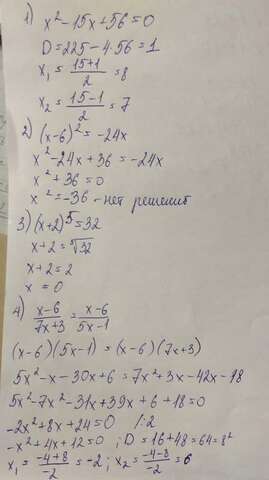 1) x² - 15x + 56 = 0
D = 225 - 4·56 = 1
x₁ = (15+1)/2 = 8
x₂ = (15-1)/2 = 7
2) (x-6)² = -24x
x² - 24x + 36 = -24x
x² + 36 = 0
x² = -36 - нет решений
3) (x+2)⁵ = 32
x+2 = ⁵√32
x+2 = 2
x = 0
4) (x-6)/(7x+3) = (x-6)/(5x-1)
(x-6)(5x-1) = (x-6)(7x+3)
5x² - x - 30x + 6 = 7x² + 3x - 42x - 18
5x² - 7x² - 31x + 39x + 6 + 18 = 0
-2x² + 8x + 24 = 0 /:2
-x² + 4x + 12 = 0 ; D = 16 + 48 = 64 = 8²
x₁ = (-4+8)/-2 = -2 ; x₂ = (-4-8)/-2 = 6